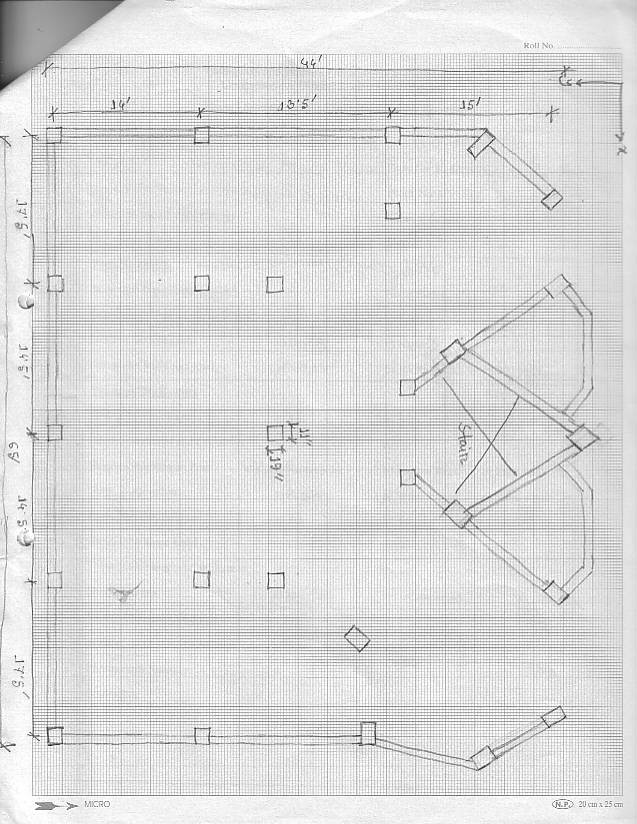 Roll No.
44'
14'
18'5'
15'
x
17.5'
14.5'
59
14.5'
17.5'
11"
19"
Stair
MICRO
N.P. 20 cm x 25 cm